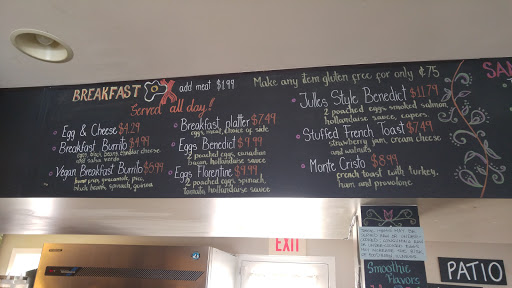 BREAKFAST add meat $1.99
Served all day!
Egg & Cheese $4.29
Breakfast Burrito $4.99
eggs, black beans, cheddar cheese
and salsa verde
Vegan Breakfast Burrito $5.99
black beans, spinach, quinoa
Breakfast platter $7.49
eggs, meat, choice of side
Eggs Benedict $9.99
2 poached eggs, canadian
bacon, hollandaise sauce
Eggs Florentine $9.99
2 poached eggs, spinach,
tomato, hollandaise sauce
Make any item gluten free for only ¢.75
Jules Style Benedict $11.79
2 poached eggs, smoked salmon,
hollandaise sauce, capers
Stuffed French Toast $7.49
strawberry jam, cream cheese
and walnuts
Monte Cristo $8.99
french toast with turkey,
ham and provolone
SAN
EXIT
Smoothie
Flavors
PATIO